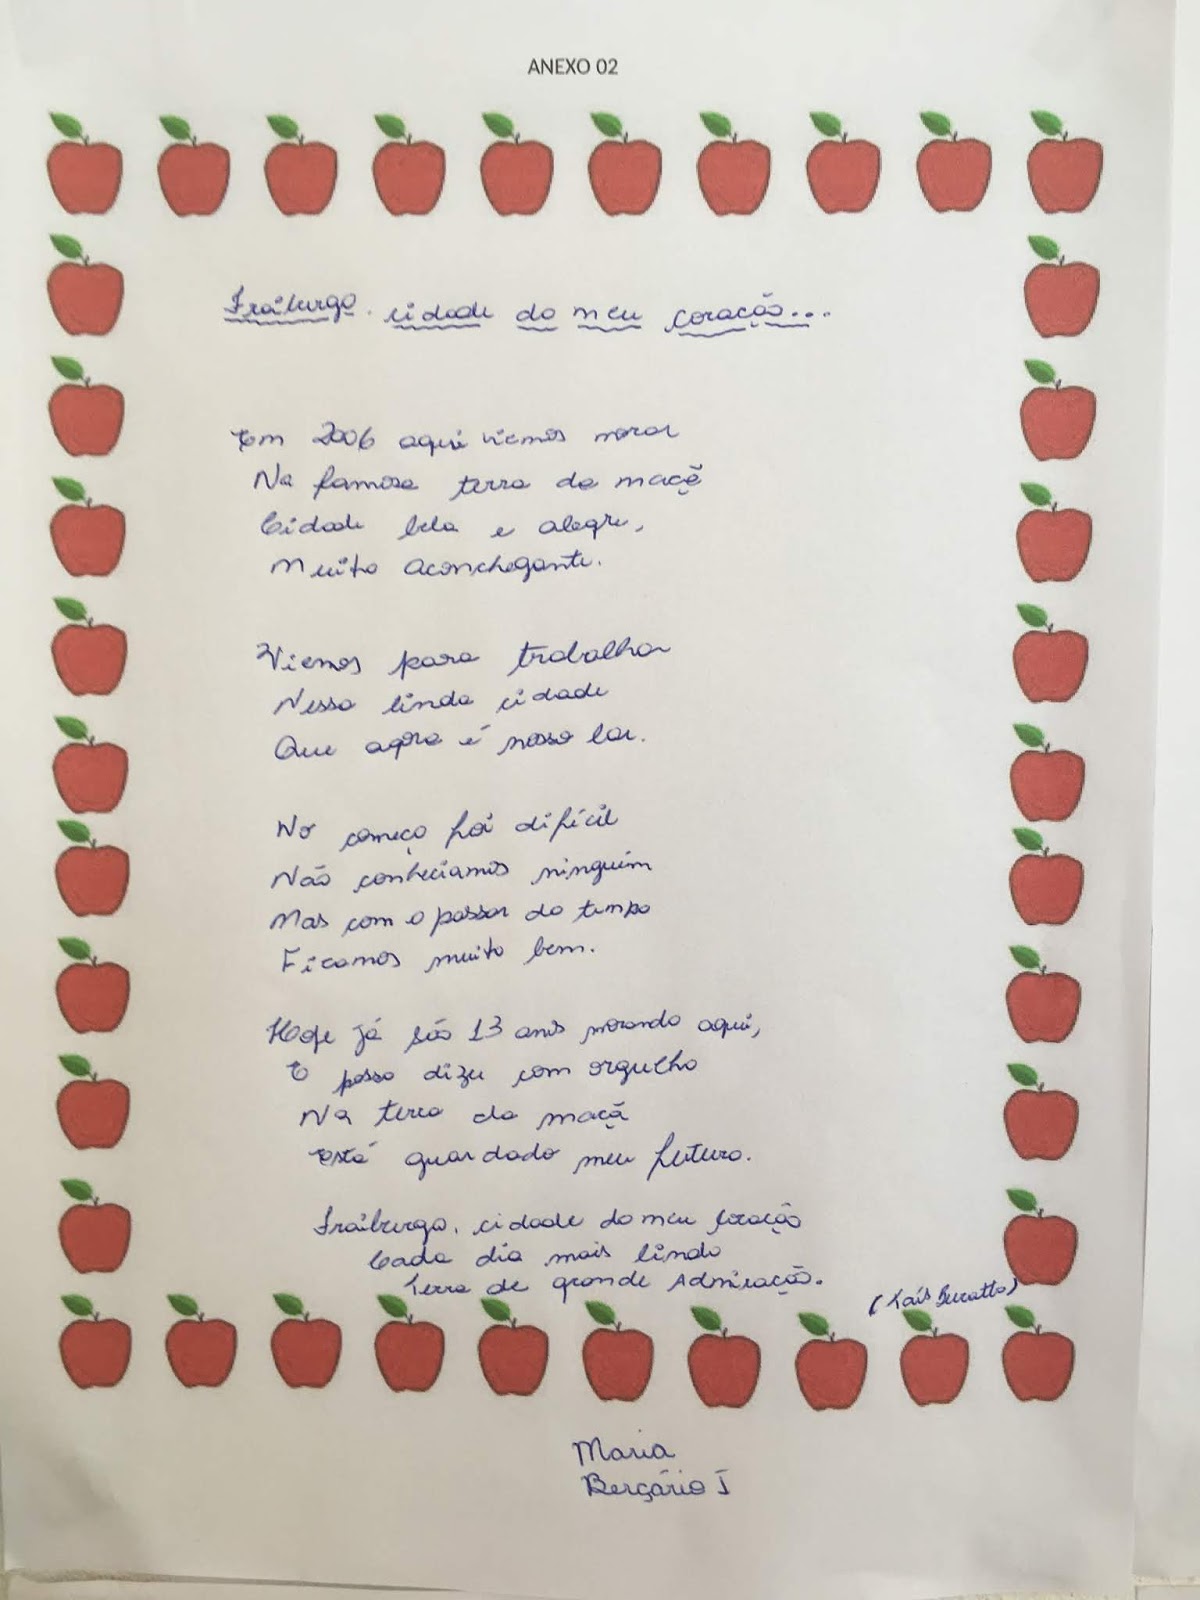 ANEXO 02
Fraiburgo. cidade do meu coração...
Em 2006 aqui viemos morar
Na famosa terra da maçã
Cidade bela e alegre,
Muito aconchegante.
Viemos para trabalhar
Nessa linda cidade
Que agora é nosso lar.
No começo foi difícil
Não conheciamos ninguém
Mas com o passar do tempo
Ficamos muito bem.
Hoje já são 13 anos morando aqui,
E posso dizer com orgulho
Na terra da maçã
Está guardado meu futuro.
Fraiburgo, cidade do meu coração
Cada dia mais linda
Terra de grande Admiração.
(Laís Buratto)
Maria
Berçário I